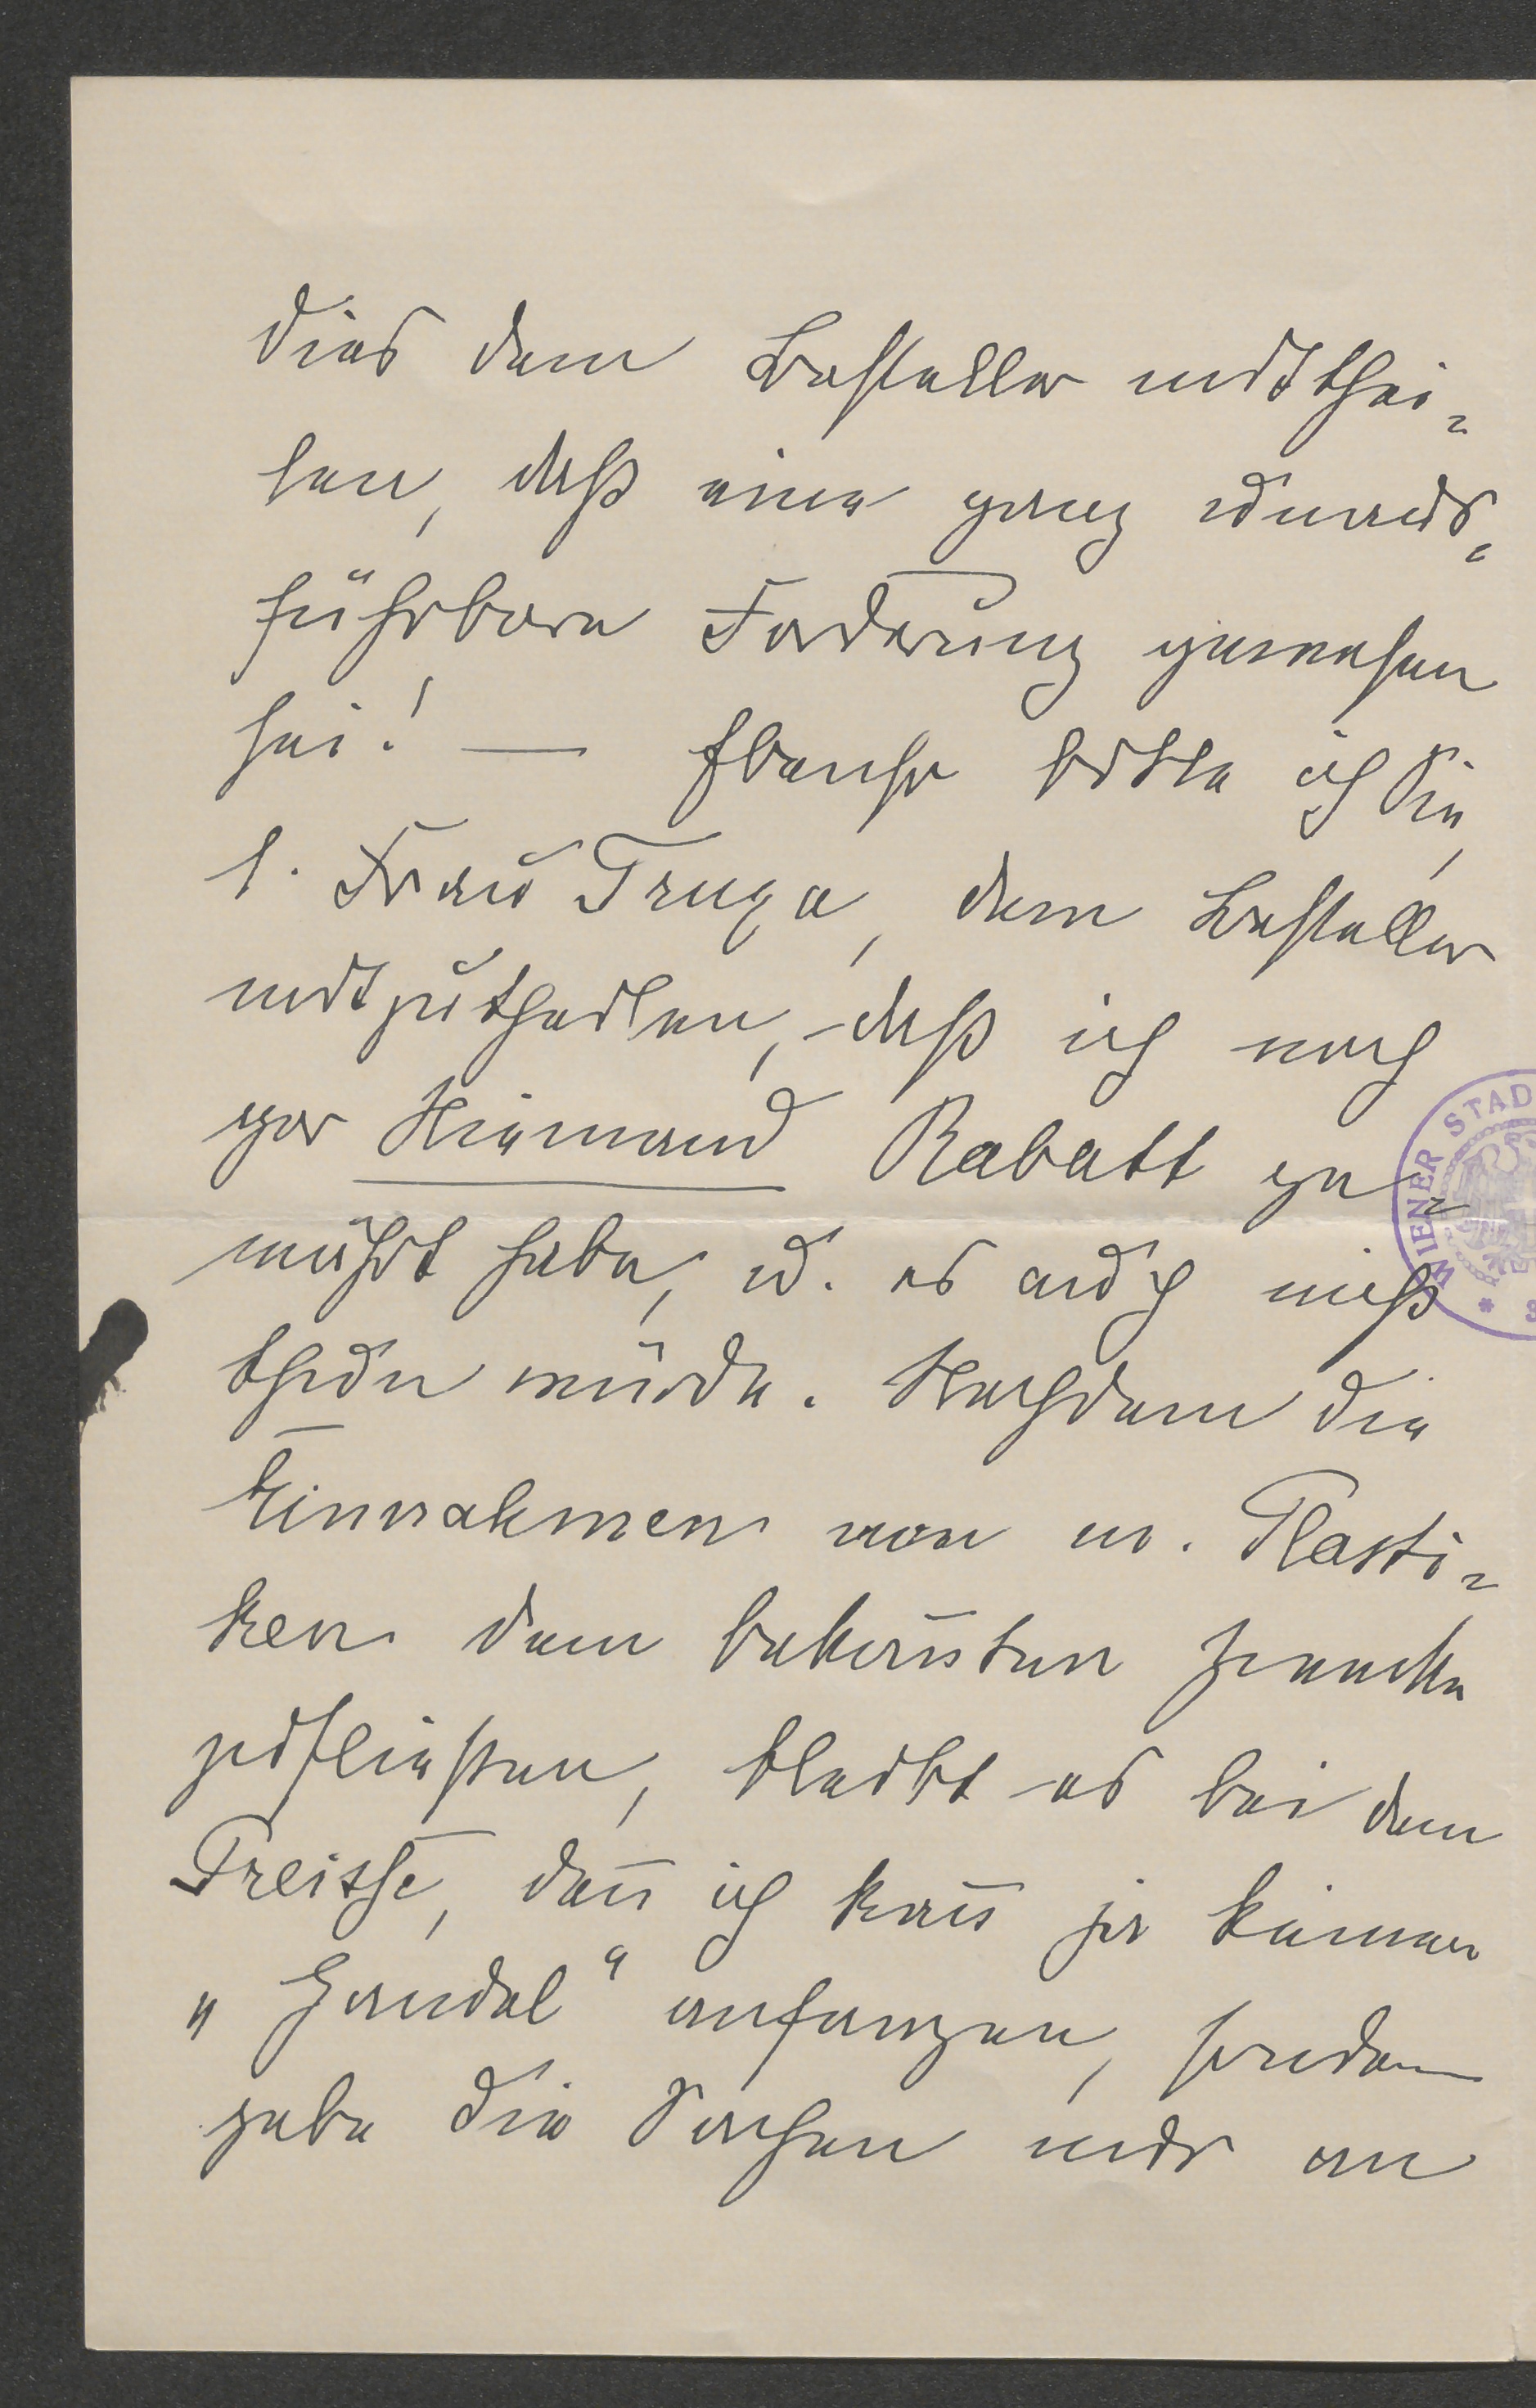 dies dem Besteller mitthei=
len, daß eine ganz unaus=
führbare Forderung gewesen
sei! — Ebenso bitte ich Sie,
l. Frau Truxa, dem Besteller
mitzutheilen, daß ich noch
gar Niemand Rabatt ge=
währt habe, u. es auch nie
thun würde. Nachdem die
Einnahmen von m. Plasti=
ken dem bekan̅ten Zwecke
zufließen, bleibt es bei dem
Preise, den̅ ich kan̅ ja keinen
„Handel“ anfangen, sondern
gebe die Sachen nur an
WIENER STAD